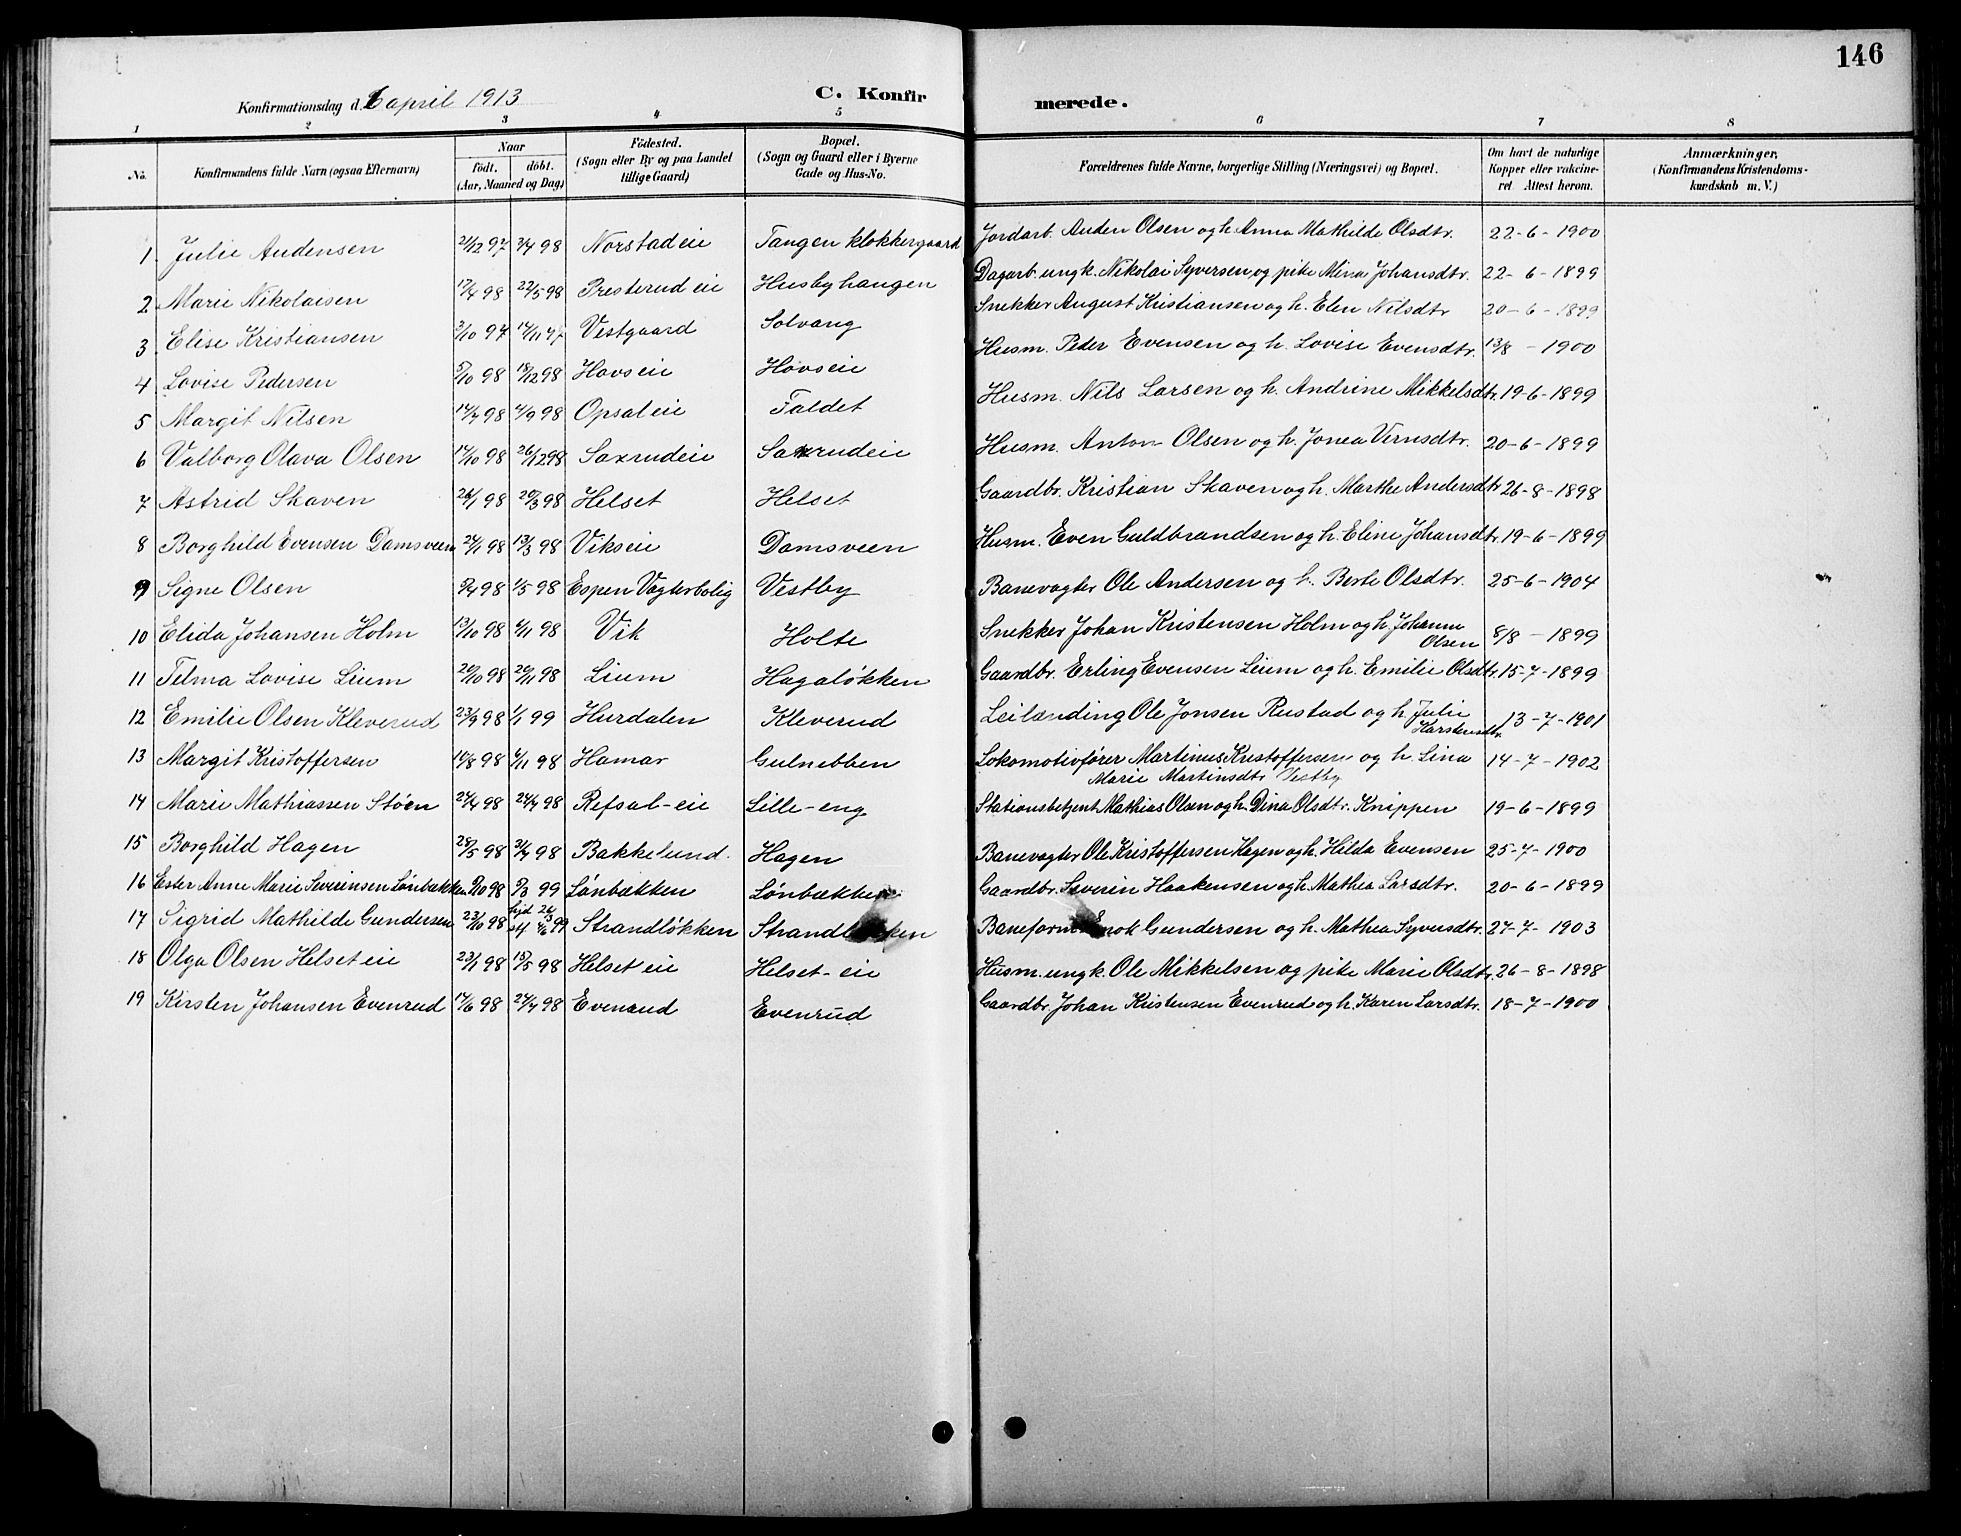 146
Konfirmationsdag d. 6 april 1913
C. Konfirmerede.
1 2 3 4 5 6 7 8
No. Konfirmandens fulde Navn (ogsaa Efternavn) Naar födt. döbt. (Aar, Maaned og Dag) Födested. (Sogn eller By og paa Landet tillige Gaard) Bopæl. (Sogn og Gaard eller i Byerne Gade og Hus-No. Forældrenes fulde Navne, borgerlige Stilling (Næringsvei) og Bopæl. Om havt de naturlige Kopper eller vakcineret. Attest herom. Anmærkninger, (Konfirmandens Kristendomskundskab m. V.)
1 Julie Audensen 21/12 97 98 Norstadeie Tangen klokkergaard Jordarb. Auden Olsen og h. Anna Mathilde Olsdtr. 22-6-1900
2 Marie Nikolaisen 17/4 98 22/5 98 Presterud eie Husbyhaugen Dagarb. ungk. Nikolai Syversen og pike Mina Johansdtr. 22-6-1899
3 Elise Kristiansen 3/10 97 14/11 97 Vestgaard Solvang Snekker August Kristiansen og h. Elen Nilsdtr 20-6-1899
4 Lovise Pedersen 5/10 98 18/12 98 Hovseie Hovseie Husm. Peder Evensen og h. Lovise Evensdtr. 13/8 - 1900
5 Margit Nilsen 14/7 98 4/9 98 Opsaleie Faldet Husm. Nils Larsen og h. Andrine Mikkelsdtr. 19-6-1899
6 Valborg Olava Olsen 17/10 98 26/12 98 Saxrudeie Saxrudeie Husm. Anton Olsen og h. Jonea Vernsdtr. 20-6-1899
7 Astrid Skaven 26/1 98 20/3 98 Helset Helset Gaardbr. Kristian Skaven og h. Marthe Andersdtr 26-8-1898
8 Borghild Evensen Damsveen 24/1 98 13/3 98 Vikseie Damsveen Husm. Even Guldbrandsen og h. Eline Johansdtr. 19-6-1899
9 Signe Olsen 98 1/5 98 Espen Vagterbolig Vestby Banevagter Ole Andersen og h. Berte Olsdtr. 25-6-1904
10 Elida Johansen Holm 13/10 98 4/11 98 Vik Holte Snekker Johan Kristensen Holm og h. Johanne Olsen 8/8 - 1899
11 Telma Lovise Lium 20/10 98 20/11 98 Lium Hagaløkken Gaardbr. Erling Evensen Lium og h. Emilie Olsdtr. 15-7-1899
12 Emilie Olsen Kleverud 23/9 98 1/1 99 Hurdalen Kleverud Leilænding Ole Jonsen Rustad og h. Julie Karstensdtr. 13-7-1901
13 Margit Kristoffersen 14/8 98 6/11 98 Hamar Gulnebben Lokomotivfører Martinus Kristoffersen og h. Lina Marie Martinsdtr Vestby 14-7-1902
14 Marie Mathiassen Støen 24/4 98 24/7 98 Refsal-eie Lille-eng Stationsbetjent Mathias Olsen og h. Dina Olsdtr. Knippen 19-6-1899
15 Borghild Hagen 28/5 98 31/7 98 Bakkelund Hagen Banevogter Ole Kristoffersen Hagen og h. Hilda Evensen 25-7-1900
16 Ester Anne Marie Severinsen Lønbækken 9/10 98 5/3 99 Lønbækken Lønbækken Gaardbr. Severin Haakensen og h. Mathea Larsdtr. 20-6-1899
17 Sigrid Mathilde Gundersen 23/10 98 hjd 26/3 st 4/6 99 Strandløkken Strandløkken Baneform. Enok Gundersen og h. Mathea Syversdtr. 27-7-1903
18 Olga Olsen Helseteie 23/1 98 15/5 98 Helset eie Helset-eie Husm. ungk. Ole Mikkelsen og pike Marie Olsdtr. 26-8-1898
19 Kirsten Johansen Evenrud 17/6 98 24/7 98 Evenrud Evenrud Gaardbr. Johan Kristensen Evenrud og h. Karen Larsdtr. 18-7-1900